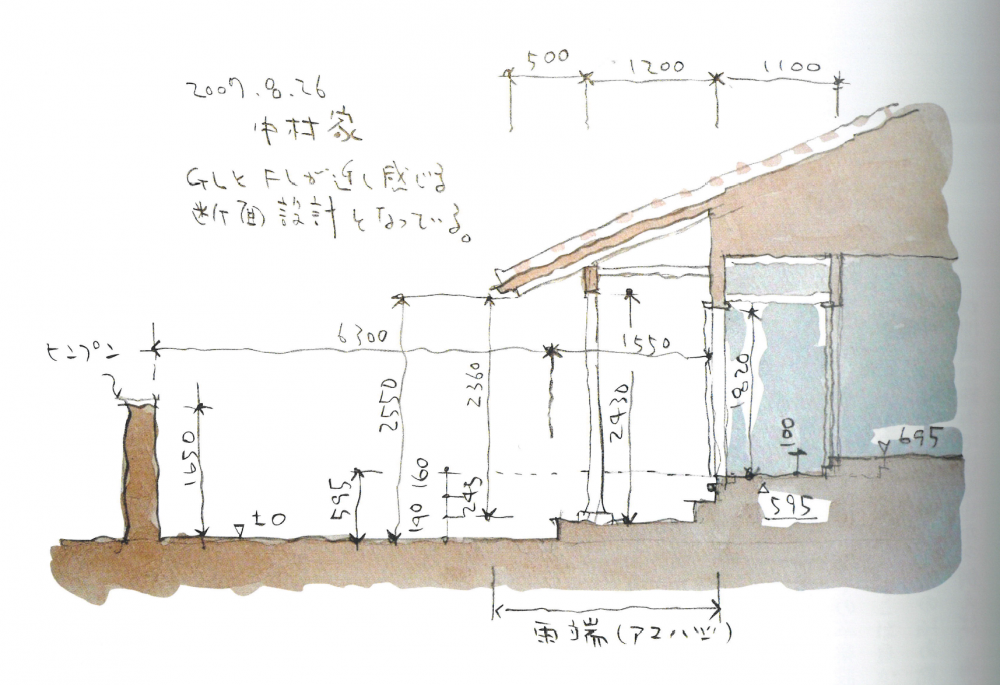 2007.8.26
中村家
GLとFLが近し感じる
断面設計となっている。
500
1200
1100
ヒンプン
6300
1550
1650
2550
2360
2430
1820
100
▽695
595
160
245
190
▽±0
△595
雨端(アマハジ)